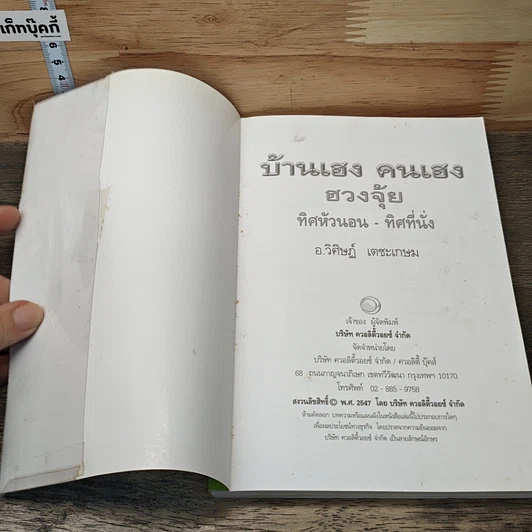 เก็ทบุ๊คกี้
6
5
4
บ้านเฮง คนเฮง
ฮวงจุ้ย
ทิศหัวนอน - ทิศที่นั่ง
อ.วิศิษฎ์ เตชะเกษม
เจ้าของ ผู้จัดพิมพ์
บริษัท ควอลิตี้วอยซ์ จำกัด
จัดจำหน่ายโดย
บริษัท ควอลิตี้วอยซ์ จำกัด / ควอลิตี้ บุ๊คส์
68 ถนนกาญจนาภิเษก เขตทวีวัฒนา กรุงเทพฯ 10170.
โทรศัพท์ 02 - 885 - 9758
สงวนลิขสิทธิ์ © พ.ศ. 2547 โดย บริษัท ควอลิตี้วอยซ์ จำกัด
ห้ามคัดลอก บทความหรือแผนผังในหนังสือเล่มนี้ไปประกอบการใดๆ
เพื่อผลประโยชน์ทางธุรกิจ โดยปราศจากความยินยอมจาก
บริษัท ควอลิตี้วอยซ์ จำกัด เป็นลายลักษณ์อักษร